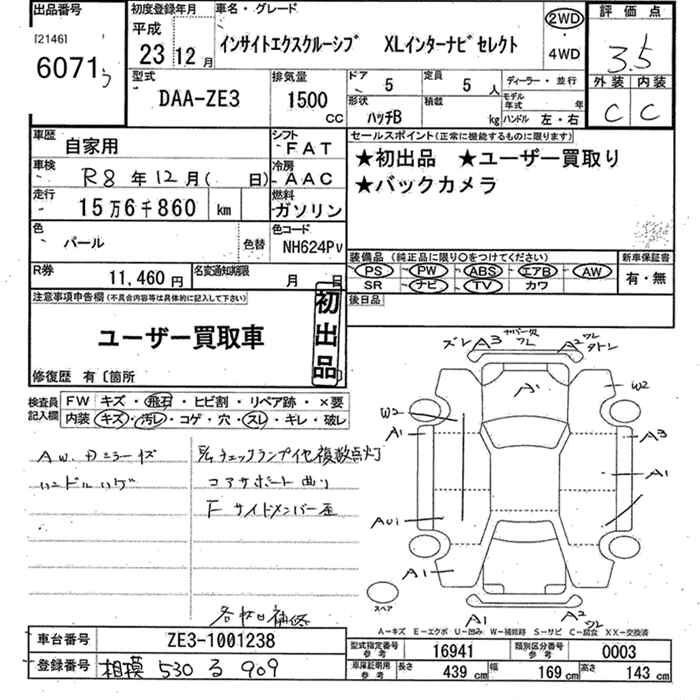 出品番号 初度登録年月 車名・グレード 評価点
[2146]
6071
平成
23 12月 インサイトエクスクルーシブ XLインターナビセレクト
2WD
4WD
3.5
外装 内装
C C
型式 排気量 ドア 定員 ディーラー・並行
DAA-ZE3 1500 CC 5 5人
形状 積載 モデル年式 年
ハッチB kg ハンドル 左・右
車歴 自家用
シフト FAT
セールスポイント(正常に機能するものに限ります)
★初出品 ★ユーザー買取り
★バックカメラ
車検 R8年12月( 日)
冷房 AAC
走行 15万6千860 km
燃料 ガソリン
色 パール 色替
色コード NH624PV
装備品(純正品に限り○をつけてください) 新車保証書
PS PW ABS エアB AW 有・無
SR ナビ TV カワ
R券 11,460円 名変通知期限 月 日
後日品
注意事項申告欄(不具合内容等は具体的に記入して下さい)
初出品
ユーザー買取車
修復歴 有〔箇所 〕
検査員記入欄
FW キズ・飛石・ヒビ割・リペア跡・×要
内装 キズ・汚レ・コゲ・穴・スレ・キレ・破レ
ハンドルハゲ
チェックランプ他複数点灯
コアサポート曲り
F サイドメンバー歪
各状日補修
ズレ A3 フレ A2
A1
W2
W2
A1
A3
A1
AU1
A1
スペア
A1 A2
A−キズ E−エクボ U−凹み W−補修跡 S−サビ C−腐食 XX−交換済
車台番号 ZE3-1001238
型式指定番号参考 16941 類別区分番号参考 0003
登録番号 相模 530 る 909
車庫証明用参考 長さ 439 cm 幅 169 cm 高さ 143 cm